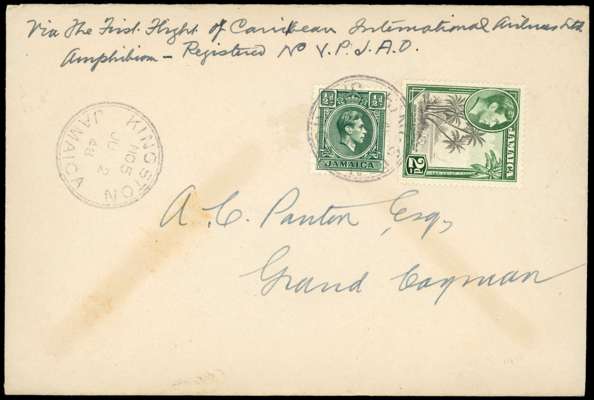 Via The First Flight of Carribean International Airlines Ltd.
Amphibian – Registered No V.P.J.A.O.
KINGSTON
NO5
JU 2
48
JAMAICA
½D
½D
JAMAICA
2D
JAMAICA
A. C. Panton Esq,
Grand Cayman